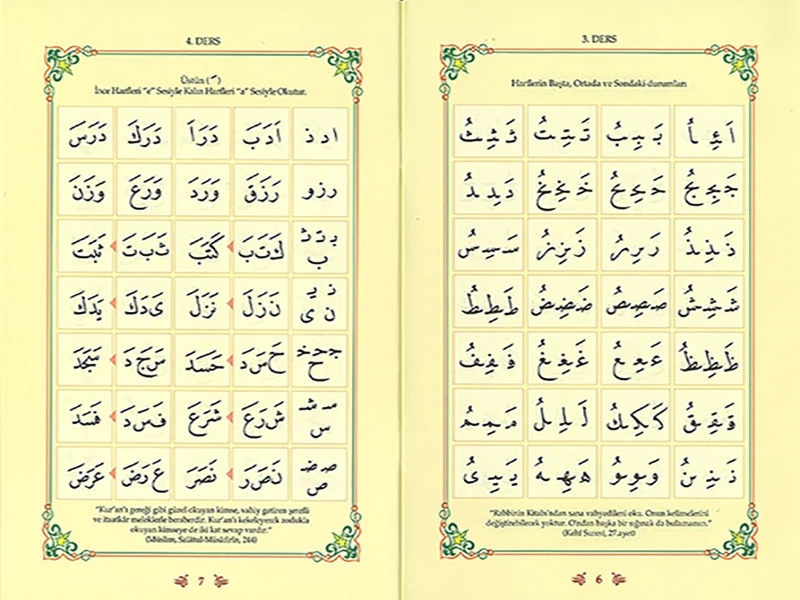 3. DERS
Harflerin Başta, Ortada ve Sondaki durumları
اَ ئِ اُ بَبِبُ تَتِتُ ثَثِثُ
جَجِجُ حَحِحُ خَخِخُ دَدِدُ
ذَذِذُ رَرِرُ زَزِزُ سَسِسُ
شَشِشُ صَصِصُ ضَضِضُ طَطِطُ
ظَظِظُ عَعِعُ غَغِغُ فَفِفُ
قَقِقُ كَكِكُ لَلِلُ مَمِمُ
نَنِنُ وَوِوُ هَهِهُ يَيِىُ
"Rabbinin Kitabı'ndan sana vahyedileni oku. Onun kelimelerini
değiştirebilecek yoktur. O'ndan başka bir sığınak da bulamazsın."
(Kehf Suresi, 27.ayet)
6
4. DERS
Üstün (َ)
İnce Harfleri "e" Sesiyle Kalın Harfleri "a" Sesiyle Okutur.
ا د ذ اَدَبَ دَرَاَ دَرَكَ دَرَسَ
ر ز و رَزَقَ وَرَدَ وَرَعَ وَزَنَ
بـ تـ ثـ ب كَ تَ بَ كَتَبَ ثَ بَ تَ ثَبَتَ
نـ يـ ن ى نَ زَ لَ نَزَلَ ىَ دَ كَ يَدَكَ
جـ حـ خـ ح حَ سَ دَ حَسَدَ سَ جَ دَ سَجَدَ
سـ شـ س شَ رَ عَ شَرَعَ فَ سَ دَ فَسَدَ
صـ ضـ ص نَ صَ رَ نَصَرَ عَ رَ ضَ عَرَضَ
"Kur'an'ı gereği gibi güzel okuyan kimse, vahiy getiren şerefli
ve itaatkâr meleklerle beraberdir. Kur'an'ı kekeleyerek zorlukla
okuyan kimseye de iki kat sevap vardır."
(Müslim, Salâtül-Müsâfirîn, 244)
7